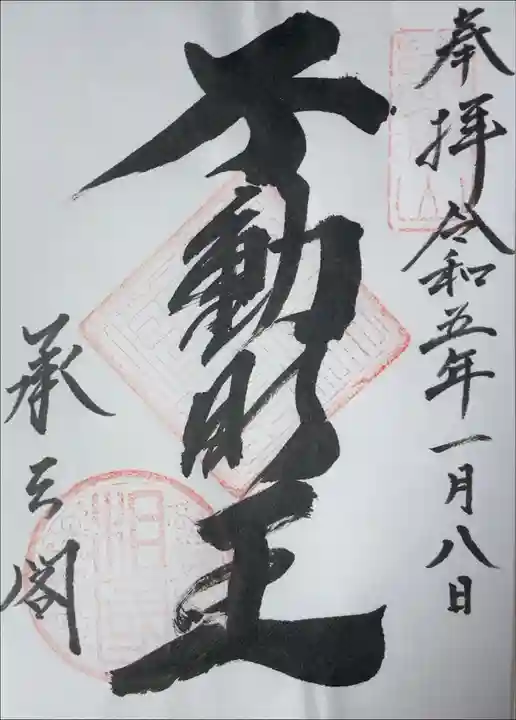 奉拝 令和五年一月八日
不動明王
承天閣